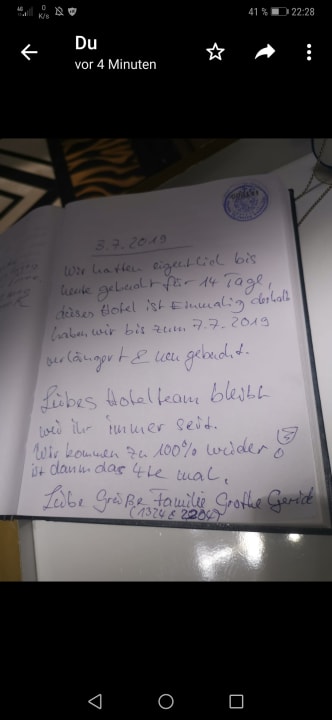 41 % 22:28
Du
vor 4 Minuten
3.7.2019
Wir hatten eigentlich bis
heute gebucht für 14 Tage,
dieses Hotel ist Einmalig deshalb
haben wir bis zum 7.7.2019
verlängert & neu gebucht.
Liebes Hotelteam bleibt
wie ihr immer seid.
Wir kommen zu 100% wider
ist dann das 4te mal.
Liebe Grüße Familie Grothe Gerick
(1324 & 2204)